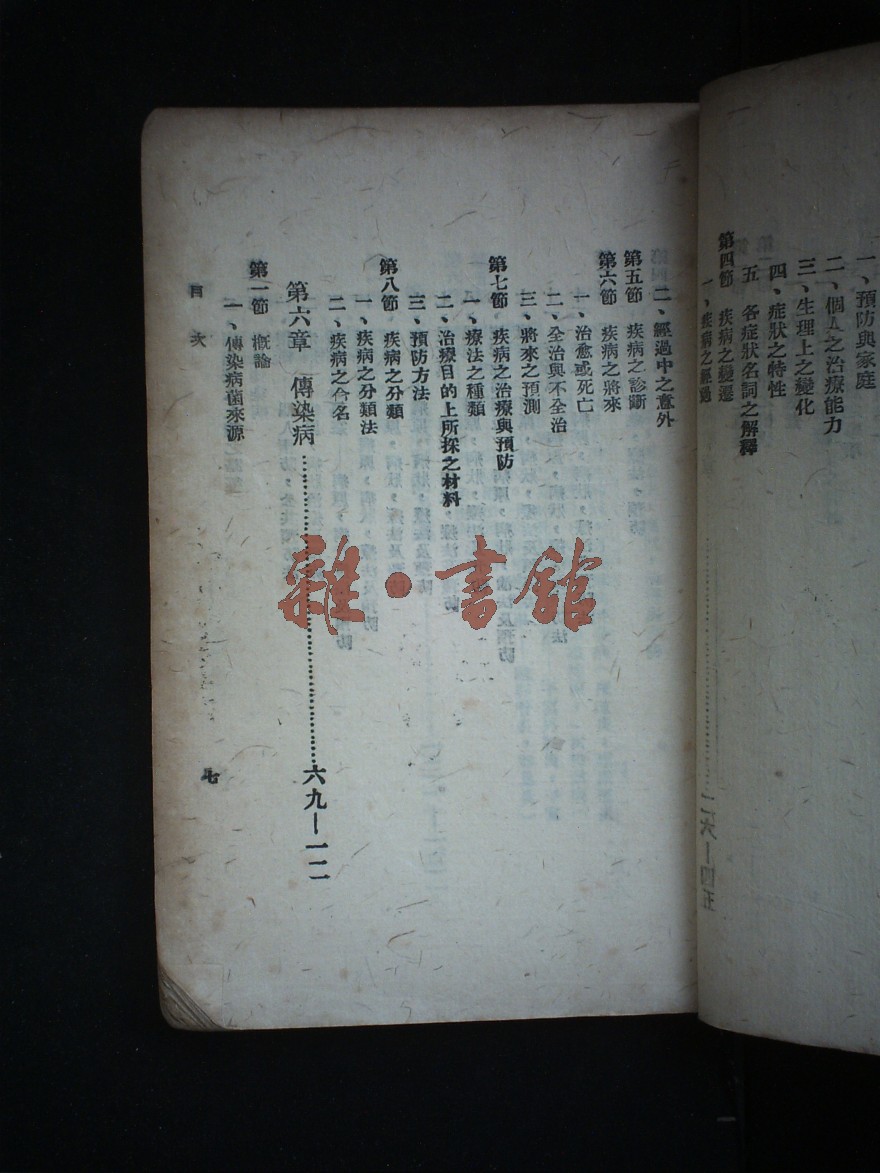 一、預防與家庭
二、個人之治療能力
三、生理上之變化
四、症狀之特性
五 各症狀名詞之解釋
第四節 疾病之變遷
一、疾病之經過
二、經過中之意外
第五節 疾病之診斷
第六節 疾病之將來
一、治愈或死亡
二、全治與不全治
三、將來之預測
第七節 疾病之治療與預防
一、療法之種類
二、治療目的上所採之材料
三、預防方法
第八節 疾病之分類
一、疾病之分類法
二、疾病之合名
第六章 傳染病……六九—一一一
第一節 概論
一、傳染病菌來源
目次
七
雜·書館